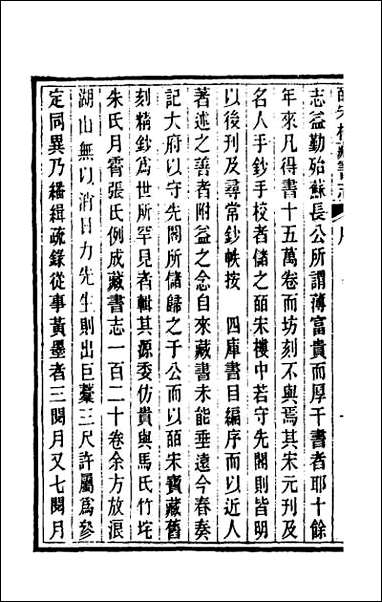 皕宋樓藏書志 序
志益勤殆蘇長公所謂薄富貴而厚于書者耶十餘
年來凡得書十五萬卷而坊刻不與焉其宋元刊及
名人手鈔手校者儲之皕宋樓中若守先閣則皆明
以後刊及尋常鈔帙按 四庫書目編序而以近人
著述之善者附益之念自來藏書未能垂遠今春奏
記大府以守先閣所儲歸之于公而以皕宋寶藏舊
刻精鈔爲世所罕見者輯其源委仿貴與馬氏竹垞
朱氏月霄張氏例成藏書志一百二十卷余方放浪
湖山無以消日力先生則出巨藁三尺許屬爲參
定同異乃繙緝疏錄從事黃墨者三閱月又七閱月